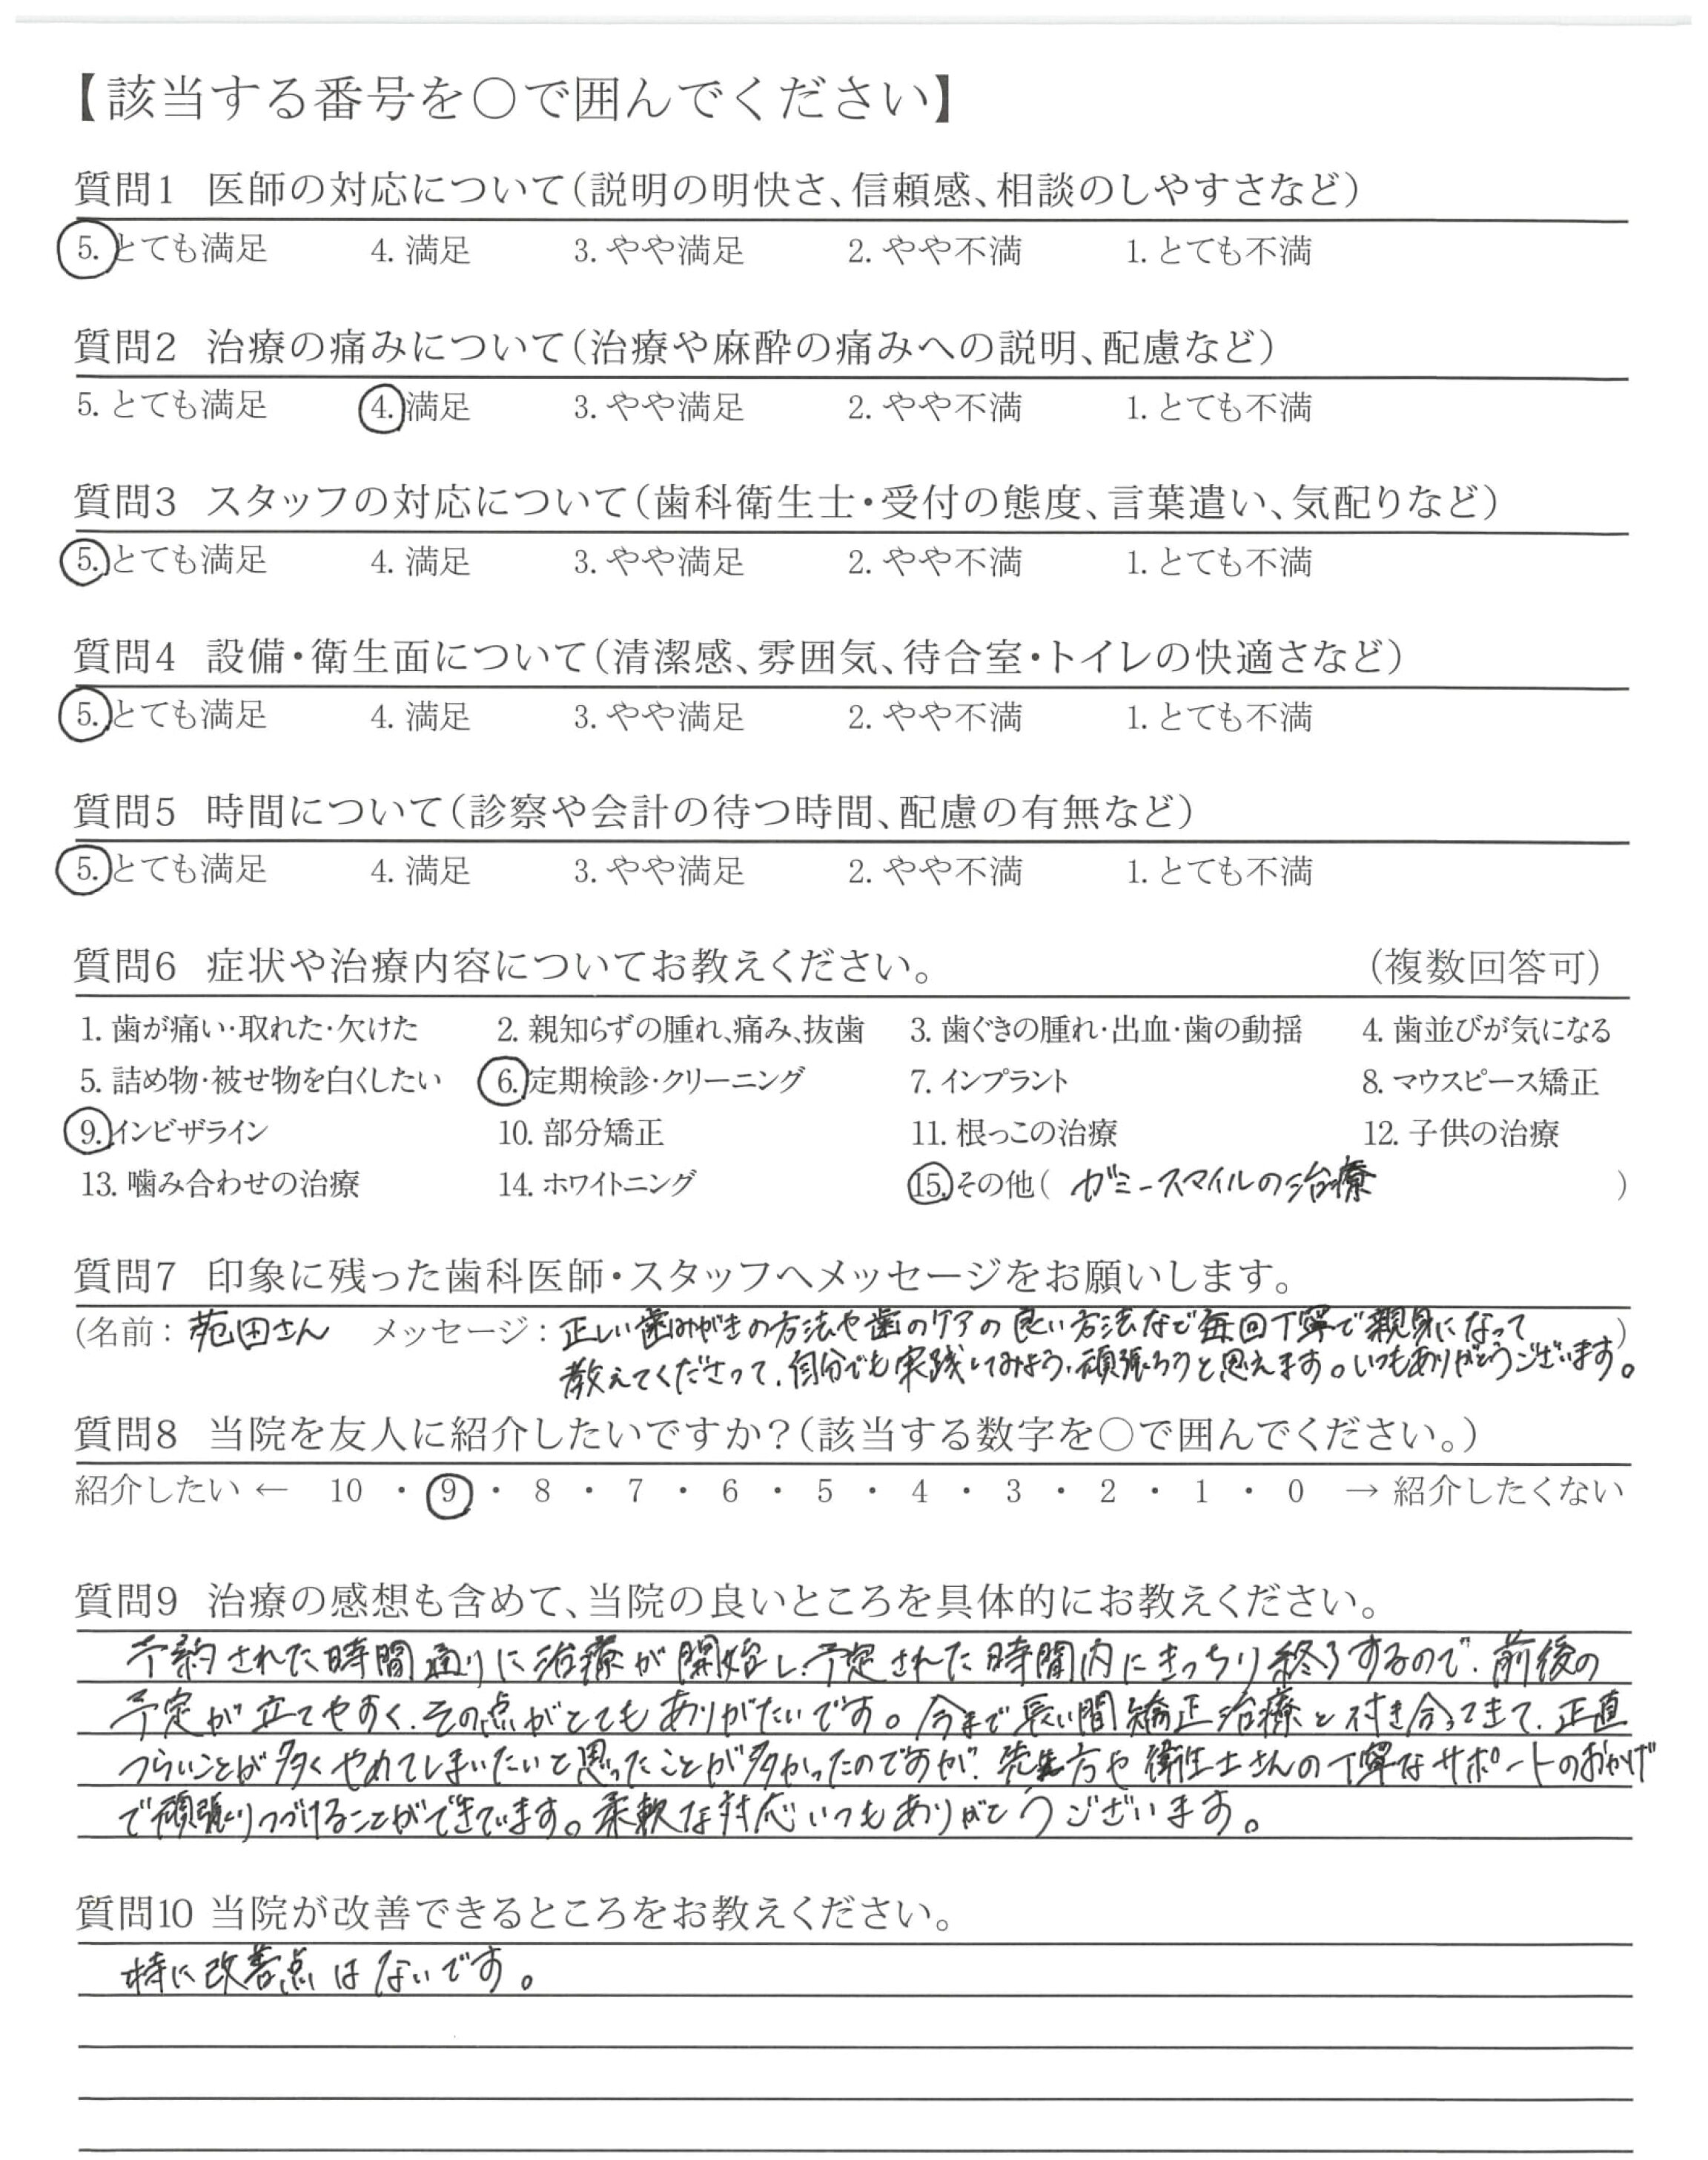 【該当する番号を〇で囲んでください】
質問1 医師の対応について(説明の明快さ、信頼感、相談のしやすさなど)
5. とても満足 4. 満足 3. やや満足 2. やや不満 1. とても不満
質問2 治療の痛みについて(治療や麻酔の痛みへの説明、配慮など)
5. とても満足 4. 満足 3. やや満足 2. やや不満 1. とても不満
質問3 スタッフの対応について(歯科衛生士・受付の態度、言葉遣い、気配りなど)
5. とても満足 4. 満足 3. やや満足 2. やや不満 1. とても不満
質問4 設備・衛生面について(清潔感、雰囲気、待合室・トイレの快適さなど)
5. とても満足 4. 満足 3. やや満足 2. やや不満 1. とても不満
質問5 時間について(診察や会計の待つ時間、配慮の有無など)
5. とても満足 4. 満足 3. やや満足 2. やや不満 1. とても不満
質問6 症状や治療内容についてお教えください。 (複数回答可)
1. 歯が痛い・取れた・欠けた 2. 親知らずの腫れ、痛み、抜歯 3. 歯ぐきの腫れ・出血・歯の動揺 4. 歯並びが気になる
5. 詰め物・被せ物を白くしたい 6. 定期検診・クリーニング 7. インプラント 8. マウスピース矯正
9. インビザライン 10. 部分矯正 11. 根っこの治療 12. 子供の治療
13. 噛み合わせの治療 14. ホワイトニング 15. その他( ガミースマイルの治療 )
質問7 印象に残った歯科医師・スタッフへメッセージをお願いします。
(名前: 苑田さん メッセージ: 正しい歯みがきの方法や歯のケアの良い方法など毎回丁寧で親身になって )
教えてくださって、自分でも実践してみよう、頑張ろうと思えます。いつもありがとうございます。
質問8 当院を友人に紹介したいですか?(該当する数字を〇で囲んでください。)
紹介したい ← 10 ・ 9 ・ 8 ・ 7 ・ 6 ・ 5 ・ 4 ・ 3 ・ 2 ・ 1 ・ 0 → 紹介したくない
質問9 治療の感想も含めて、当院の良いところを具体的にお教えください。
予約された時間通りに治療が開始し、予定された時間内にきっちり終了するので、前後の
予定が立てやすく、その点がとてもありがたいです。今まで長い間矯正治療と付き合ってきて、正直
つらいことが多くやめてしまいたいと思ったことが多かったのですが、先生方や衛生士さんの丁寧なサポートのおかげ
で頑張りつづけることができています。柔軟な対応いつもありがとうございます。
質問10 当院が改善できるところをお教えください。
特に改善点はないです。